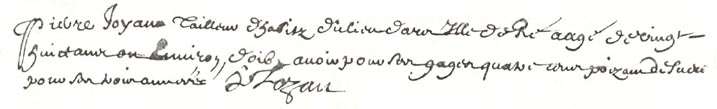 Pierre Joyaux tailleur d'habitz du lieu d'ars Isle de Ré aagé de vingt
huict ans ou Environ doibt avoir pour ses gages quatre cens soixante de sucre
pour ses trois années